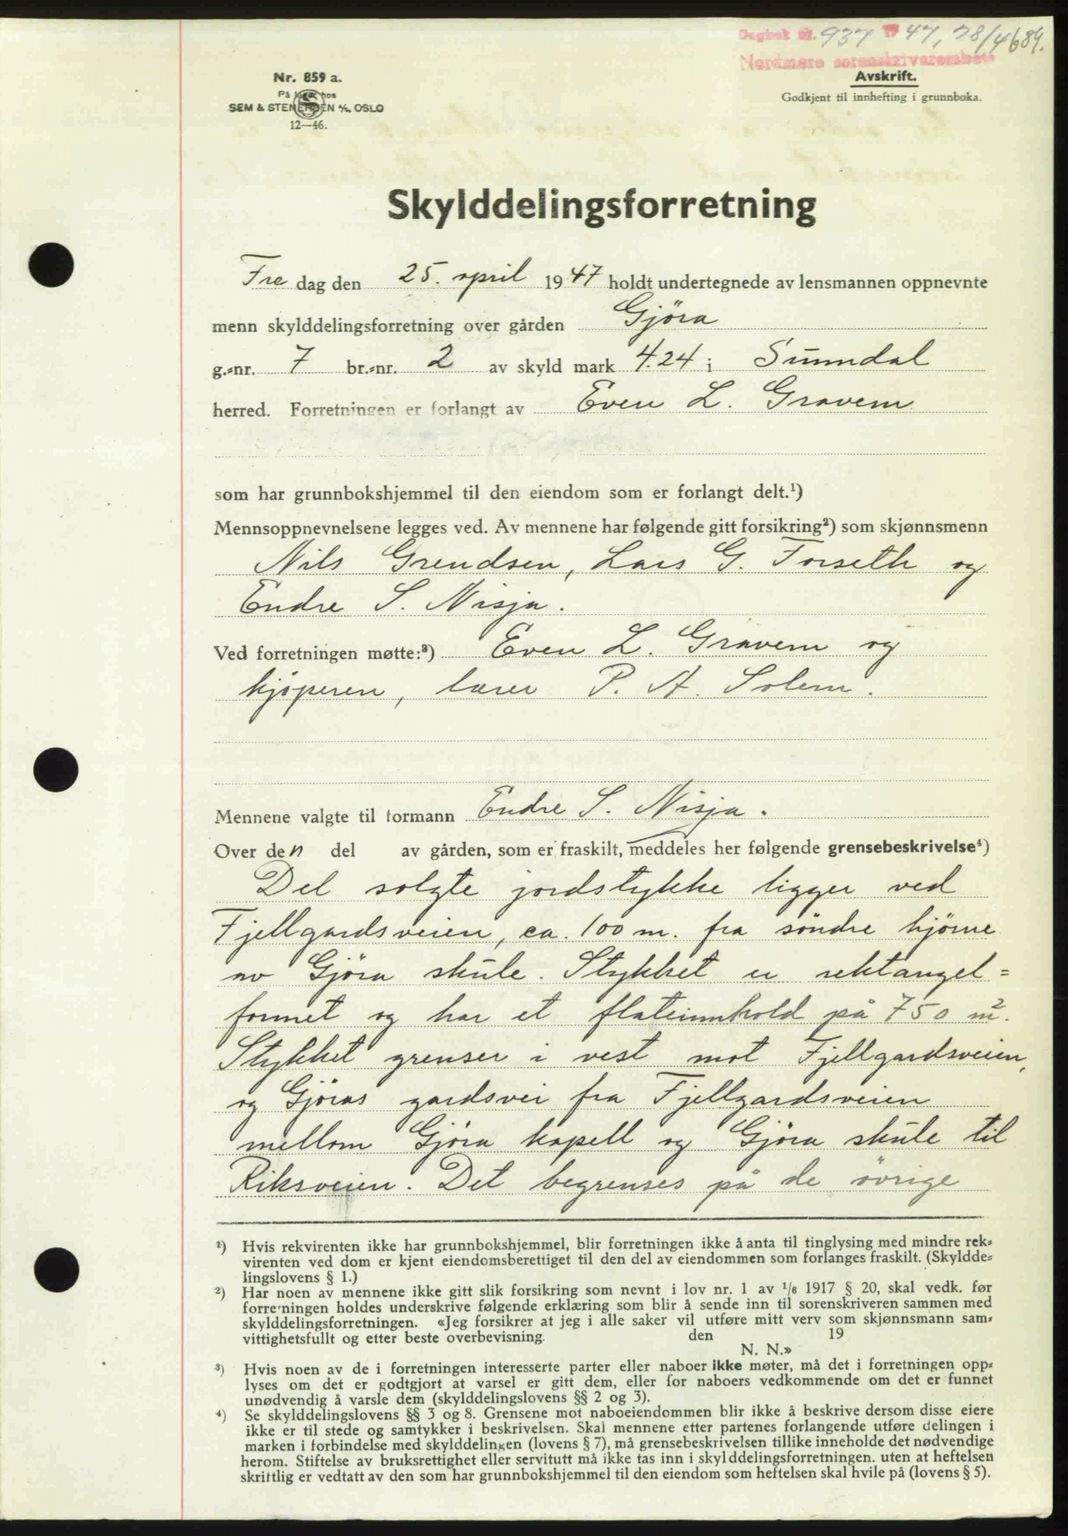 Dagbok nr. 937 19 47, 28/4 684.
Nordmøre sorenskriverembete
Nr. 859 a.
På lager hos
SEM & STENERSEN A/S, OSLO
12—46.
Avskrift.
Godkjent til innhefting i grunnboka.
Skylddelingsforretning
Fre dag den 25. april 1947 holdt undertegnede av lensmannen oppnevnte
menn skylddelingsforretning over gården Gjöra
g.-nr. 7 br.-nr. 2 av skyld mark 4.24 i Sunndal
herred. Forretningen er forlangt av Even L. Gravem
som har grunnbokshjemmel til den eiendom som er forlangt delt.¹)
Mennsoppnevnelsene legges ved. Av mennene har følgende gitt forsikring²) som skjønnsmenn
Nils Grendsen, Lars G. Forseth og
Endre S. Nisja.
Ved forretningen møtte:³) Even L. Gravem og
kjöperen, lærer P. A. Solem.
Mennene valgte til formann Endre S. Nisja.
Over den del av gården, som er fraskilt, meddeles her følgende grensebeskrivelse⁴)
Det solgte jordstykke ligger ved
Fjellgardsveien, ca. 100 m. fra söndre hjörne
av Gjöra skule. Stykket er rektangel=
formet og har et flateinnhold på 750 m².
Stykket grenser i vest mot Fjellgardsveien,
og Gjöras gardsvei fra Fjellgardsveien
mellom Gjöra kapell og Gjöra skule til
Riksveien. Det begrenses på de övrige
¹) Hvis rekvirenten ikke har grunnbokshjemmel, blir forretningen ikke å anta til tinglysing med mindre rek-
virenten ved dom er kjent eiendomsberettiget til den del av eiendommen som forlanges fraskilt. (Skyldde-
lingslovens § 1.)
²) Har noen av mennene ikke gitt slik forsikring som nevnt i lov nr. 1 av 1/6 1917 § 20, skal vedk. før
forretningen holdes underskrive følgende erklæring som blir å sende inn til sorenskriveren sammen med
skylddelingsforretningen. «Jeg forsikrer at jeg i alle saker vil utføre mitt verv som skjønnsmann sam-
vittighetsfullt og etter beste overbevisning. den 19
N. N.»
³) Hvis noen av de i forretningen interesserte parter eller naboer ikke møter, må det i forretningen opp-
lyses om det er godtgjort at varsel er gitt dem, eller for naboers vedkommende om det er funnet
unødvendig å varsle dem (skylddelingslovens §§ 2 og 3).
⁴) Se skylddelingslovens §§ 3 og 8. Grensene mot naboeiendommen blir ikke å beskrive dersom disse eiere
ikke er til stede og samtykker i beskrivelsen. Skal mennene etter partenes forlangende utføre delingen i
marken i forbindelse med skylddelingen (lovens § 7), må grensebeskrivelsen tillike inneholde det nødvendige
herom. Stiftelse av bruksrettighet eller servitutt må ikke tas inn i skylddelingsforretningen. uten at heftelsen
skriftlig er vedtatt av den som har grunnbokshjemmel til den eiendom som heftelsen skal hvile på (lovens § 5).